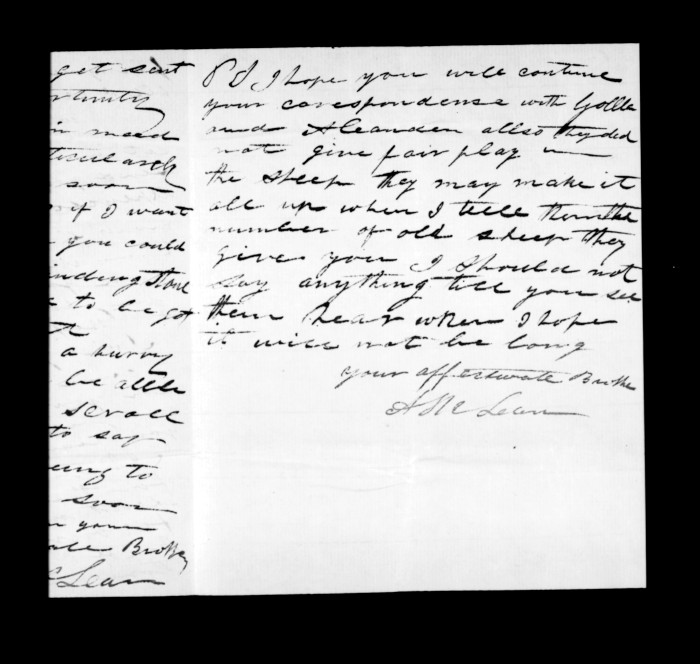 get sent
rtunity
in need
ticularly
soon
if I want
you could
inding Stone
to be got
a hurry
be able
scroll
to say
eing to
soon
n your
nate Brother
cLean
P S I hope you will contune
your corespondense with Gollle
and Aleander allso they did
not give fair play in
the sheep they may make it
all up when I tell them the
number of old sheep they
give you I should not
say anything till you see
them hear when I hope
it will not be long
your affectwate Brothe
A Mc Lean